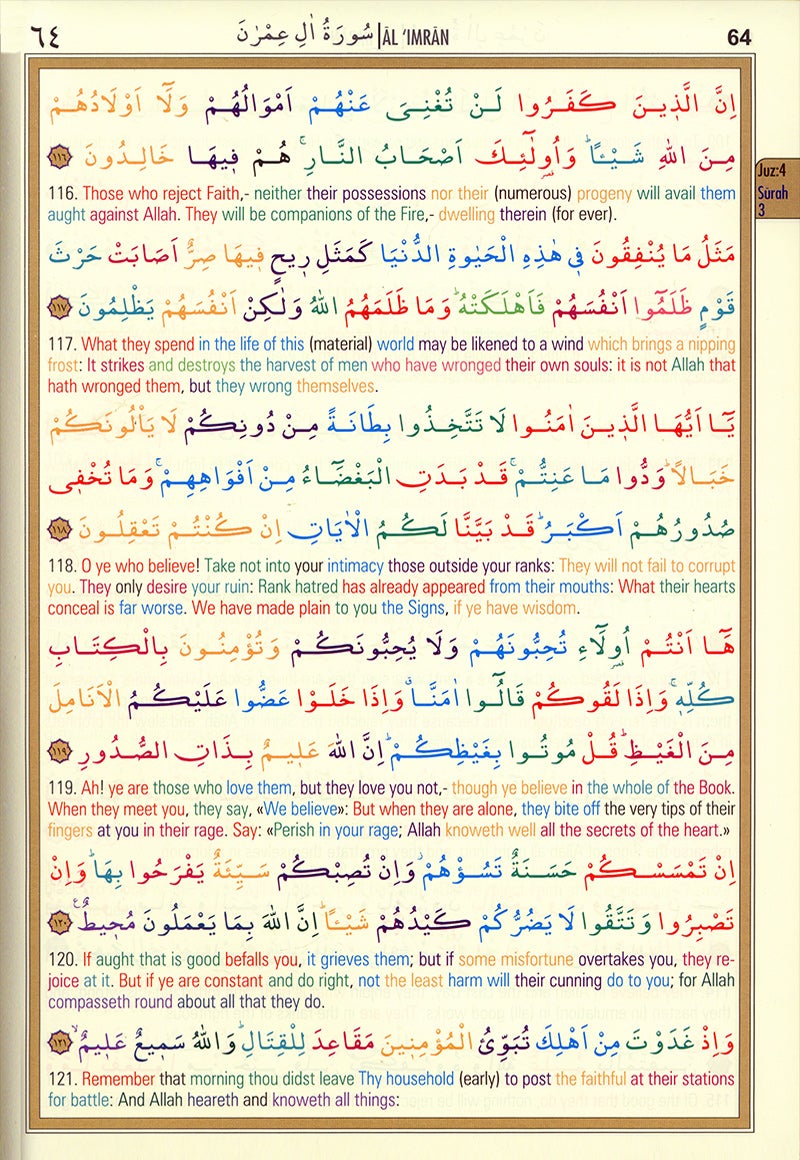 ٦٤ سُورَةُ اٰلِ عِمْرٰنَ | ÂL ‘IMRÂN 64
اِنَّ الَّذ۪ينَ كَفَرُوا لَنْ تُغْنِيَ عَنْهُمْ اَمْوَالُهُمْ وَلَٓا اَوْلَادُهُمْ
مِنَ اللّٰهِ شَيْـًٔاۜ وَاُو۬لٰٓئِكَ اَصْحَابُ النَّارِۚ هُمْ ف۪يهَا خَالِدُونَ ﴿١١٦﴾
116. Those who reject Faith,- neither their possessions nor their (numerous) progeny will avail them
aught against Allah. They will be companions of the Fire,- dwelling therein (for ever).
Juz:4
Sûrah
3
مَثَلُ مَا يُنْفِقُونَ ف۪ي هٰذِهِ الْحَيٰوةِ الدُّنْيَا كَمَثَلِ ر۪يحٍ ف۪يهَا صِرٌّ اَصَابَتْ حَرْثَ
قَوْمٍ ظَلَمُٓوا اَنْفُسَهُمْ فَاَهْلَكَتْهُۜ وَمَا ظَلَمَهُمُ اللّٰهُ وَلٰكِنْ اَنْفُسَهُمْ يَظْلِمُونَ ﴿١١٧﴾
117. What they spend in the life of this (material) world may be likened to a wind which brings a nipping
frost: It strikes and destroys the harvest of men who have wronged their own souls: it is not Allah that
hath wronged them, but they wrong themselves.
يَٓا اَيُّهَا الَّذ۪ينَ اٰمَنُوا لَا تَتَّخِذُوا بِطَانَةً مِنْ دُونِكُمْ لَا يَأْلُونَكُمْ
خَبَالًاۜ وَدُّوا مَا عَنِتُّمْۚ قَدْ بَدَتِ الْبَغْضَٓاءُ مِنْ اَفْوَاهِهِمْۚ وَمَا تُخْف۪ي
صُدُورُهُمْ اَكْبَرُۜ قَدْ بَيَّنَّا لَكُمُ الْاٰيَاتِ اِنْ كُنْتُمْ تَعْقِلُونَ ﴿١١٨﴾
118. O ye who believe! Take not into your intimacy those outside your ranks: They will not fail to corrupt
you. They only desire your ruin: Rank hatred has already appeared from their mouths: What their hearts
conceal is far worse. We have made plain to you the Signs, if ye have wisdom.
هَٓا اَنْتُمْ اُو۬لَٓاءِ تُحِبُّونَهُمْ وَلَا يُحِبُّونَكُمْ وَتُؤْمِنُونَ بِالْكِتَابِ
كُلِّه۪ۚ وَاِذَا لَقُوكُمْ قَالُٓوا اٰمَنَّاۗ وَاِذَا خَلَوْا عَضُّوا عَلَيْكُمُ الْاَنَامِلَ
مِنَ الْغَيْظِۜ قُلْ مُوتُوا بِغَيْظِكُمْۜ اِنَّ اللّٰهَ عَل۪يمٌ بِذَاتِ الصُّدُورِ ﴿١١٩﴾
119. Ah! ye are those who love them, but they love you not,- though ye believe in the whole of the Book.
When they meet you, they say, «We believe»: But when they are alone, they bite off the very tips of their
fingers at you in their rage. Say: «Perish in your rage; Allah knoweth well all the secrets of the heart.»
اِنْ تَمْسَسْكُمْ حَسَنَةٌ تَسُؤْهُمْۘ وَاِنْ تُصِبْكُمْ سَيِّئَةٌ يَفْرَحُوا بِهَاۜ وَاِنْ
تَصْبِرُوا وَتَتَّقُوا لَا يَضُرُّكُمْ كَيْدُهُمْ شَيْـًٔاۜ اِنَّ اللّٰهَ بِمَا يَعْمَلُونَ مُح۪يطٌ۟ ﴿١٢٠﴾
120. If aught that is good befalls you, it grieves them; but if some misfortune overtakes you, they re-
joice at it. But if ye are constant and do right, not the least harm will their cunning do to you; for Allah
compasseth round about all that they do.
وَاِذْ غَدَوْتَ مِنْ اَهْلِكَ تُبَوِّئُ الْمُؤْمِن۪ينَ مَقَاعِدَ لِلْقِتَالِۜ وَاللّٰهُ سَم۪يعٌ عَل۪يمٌۙ ﴿١٢١﴾
121. Remember that morning thou didst leave Thy household (early) to post the faithful at their stations
for battle: And Allah heareth and knoweth all things: